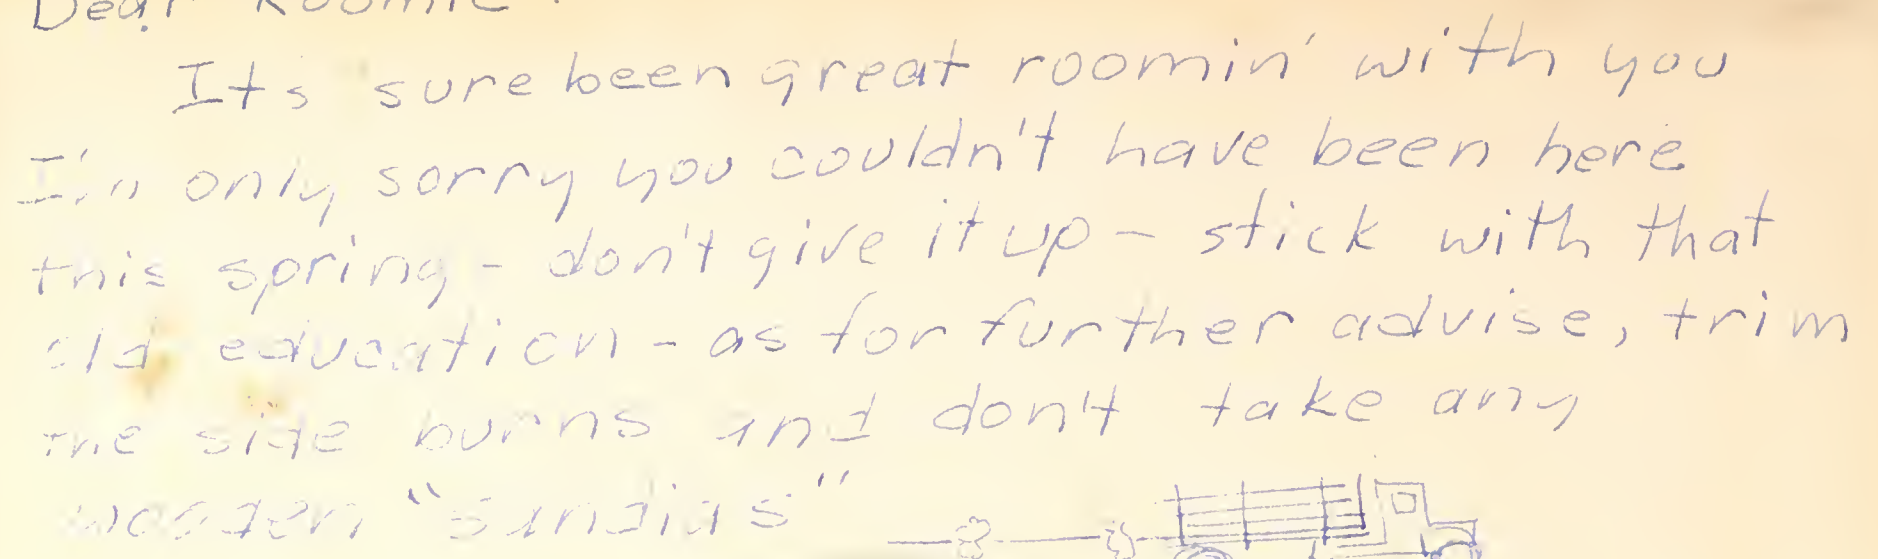 Dear Roomie:
Its sure been great roomin' with you
I'm only sorry you couldn't have been here
this spring - don't give it up - stick with that
old education - as for further advise, trim
the side burns and don't take any
wooden "sandias"